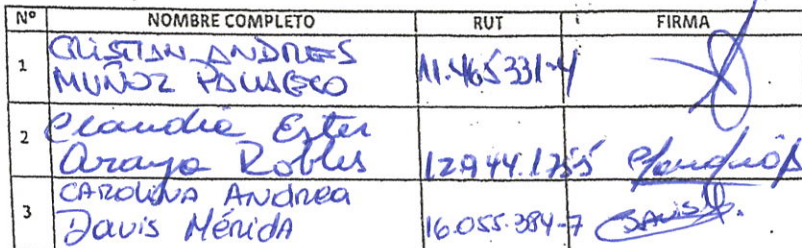 Nº NOMBRE COMPLETO RUT FIRMA
1 CRISTIAN ANDRES
MUÑOZ PACHECO 11.465331-4
2 Claudia Ester
Araya Robles 12.944.175-5
3 CAROLINA Andrea
Davis Mérida 16.055.384-7